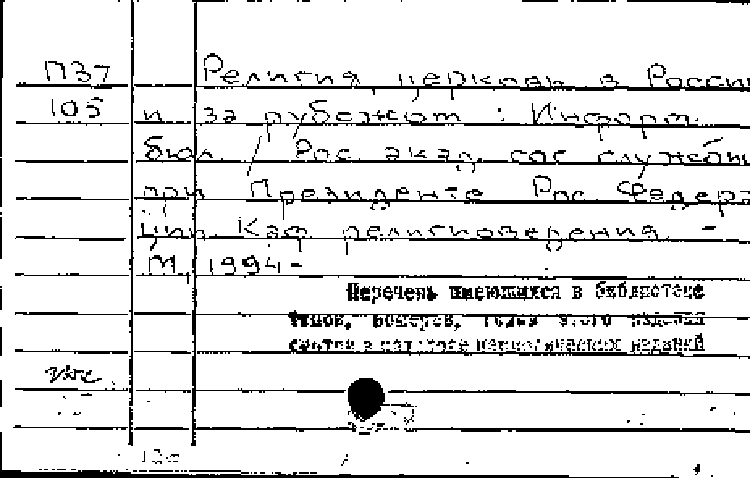 П37 Религия, церковь в России
105 и за рубежом : Информ.
бюл. / Рос. акад. гос службы
при Президенте Рос. Федера
ции. Каф. религиоведения. -
М., 1994-
Перечень имеющихся в библиотеке
томов, номеров, годов этого издания
смотри в каталоге периодических изданий